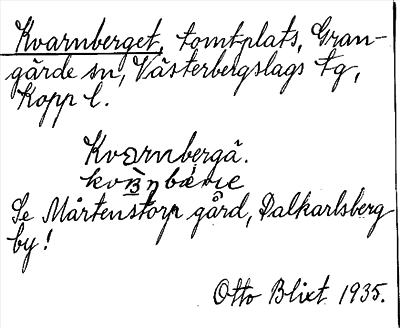 Kvarnberget, tomtplats, Gran-
gärde sn, Västerbergslags tg,
Kopp l.
Kvarnbergä.
Se Mårtenstorp gård, Dalkarlsberg
by!
Otto Blixt 1935.